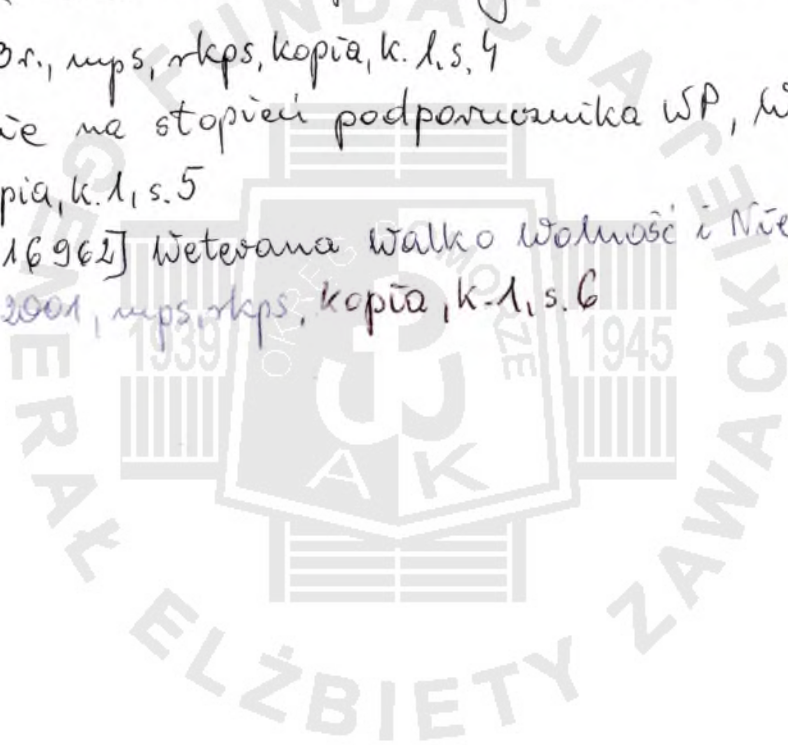 3r., mps, rkps, kopia, k. 1, s. 4
ie na stopień podporucznika WP,
pia, k. 1, s. 5
16962] Weterana Walk o Wolność i Nie
2001, mps, rkps, kopia, k. 1, s. 6
FUNDACJA
GENERAŁ ELŻBIETY ZAWACKIEJ
OKRĘG POMORZE
1939
1945
AK